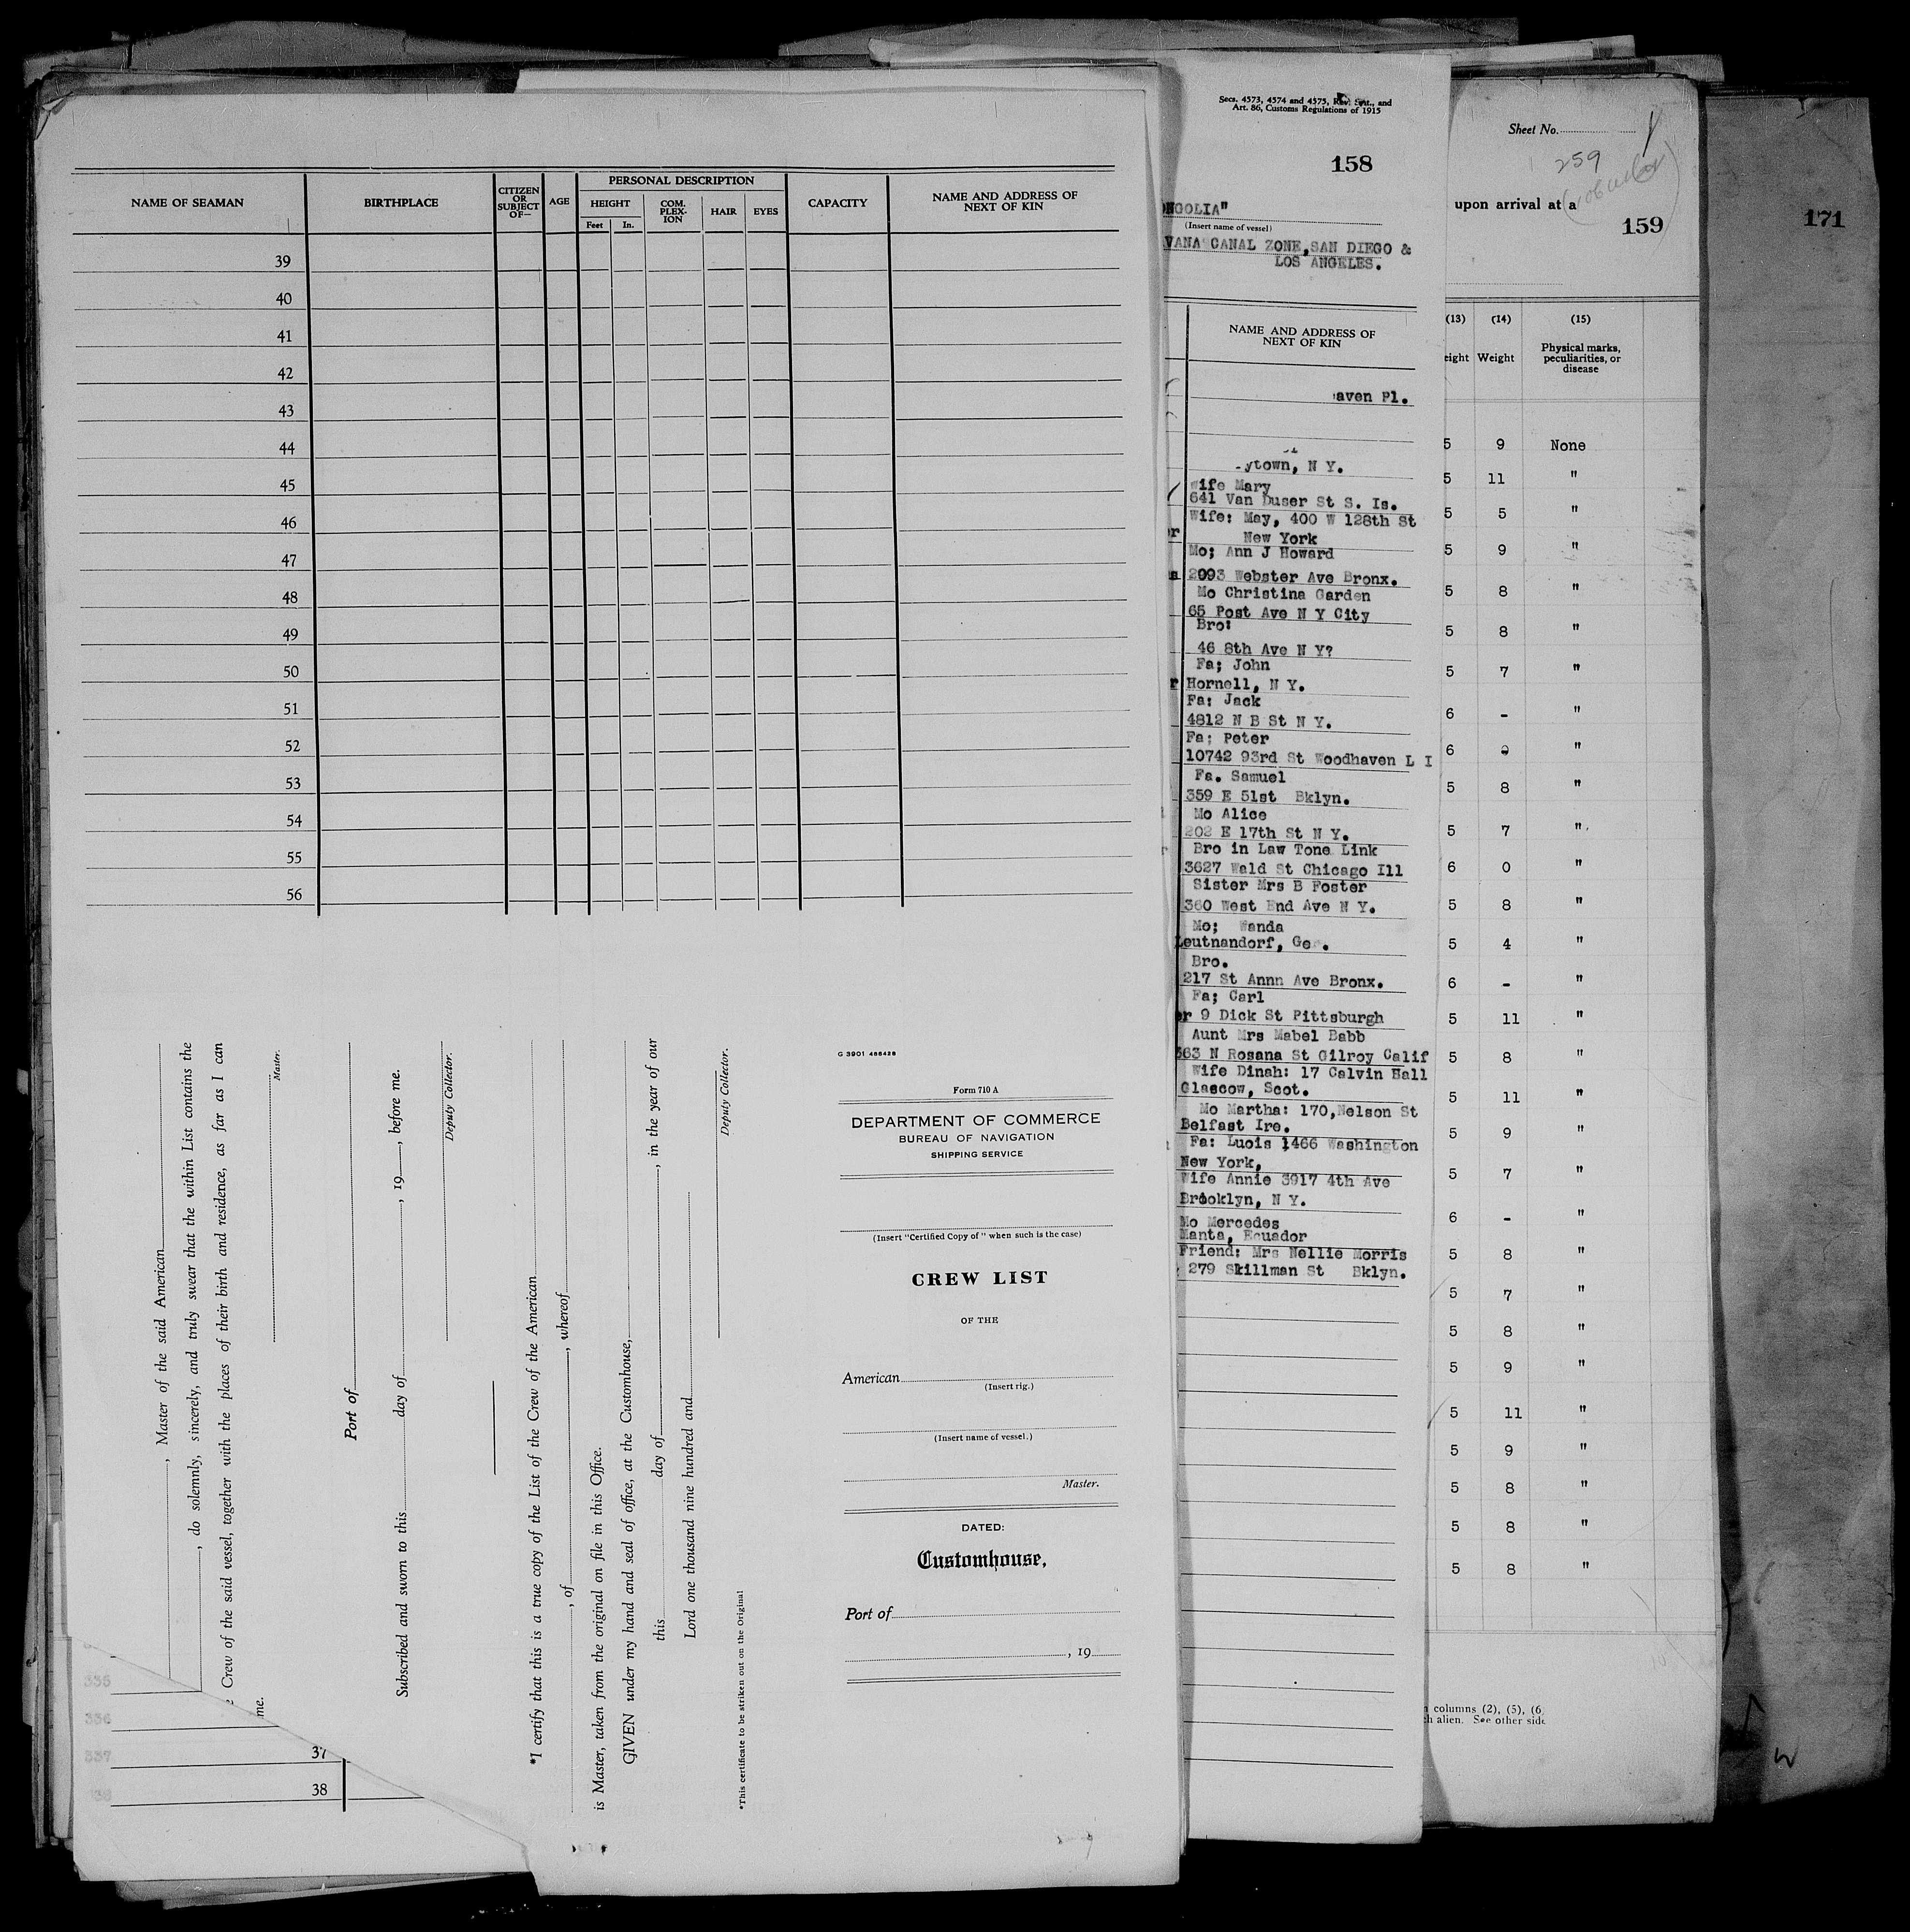 NAME OF SEAMAN
BIRTHPLACE
CITIZEN
OR
SUBJECT
OF—
AGE
PERSONAL DESCRIPTION
HEIGHT
Feet In.
COM.
PLEX-
ION
HAIR
EYES
CAPACITY
NAME AND ADDRESS OF
NEXT OF KIN
39
40
41
42
43
44
45
46
47
48
49
50
51
52
53
54
55
56
, Master of the said American
, do solemnly, sincerely, and truly swear that the within List contains the
Crew of the said vessel, together with the places of their birth and residence, as far as I can
me.
Master.
Port of
Subscribed and sworn to this day of , 19 , before me.
Deputy Collector.
*I certify that this is a true copy of the List of the Crew of the American
, of , whereof
is Master, taken from the original on file in this Office.
GIVEN under my hand and seal of office, at the Customhouse,
this day of , in the year of our
Lord one thousand nine hundred and
Deputy Collector.
*This certificate to be striken out on the Original
G 3901 466428
Form 710 A
DEPARTMENT OF COMMERCE
BUREAU OF NAVIGATION
SHIPPING SERVICE
(Insert "Certified Copy of" when such is the case)
CREW LIST
OF THE
American
(Insert rig.)
(Insert name of vessel.)
Master.
DATED:
Customhouse,
Port of
, 19
335
336
337
37
38
Secs. 4573, 4574 and 4575, Rev. Stat., and
Art. 86, Customs Regulations of 1915
158
NGOLIA"
(Insert name of vessel)
VANA CANAL ZONE, SAN DIEGO &
LOS ANGELES.
NAME AND ADDRESS OF
NEXT OF KIN
aven Pl.
ytown, N Y.
wife Mary
641 Van Duser St S. Is.
Wife: May, 400 W 128th St
New York
Mo; Ann J Howard
2093 Webster Ave Bronx.
Mo Christina Garden
65 Post Ave N Y City
Bro:
46 8th Ave N Y?
Fa; John
Hornell, N Y.
Fa: Jack
4812 N B St N Y.
Fa; Peter
10742 93rd St Woodhaven L I
Fa. Samuel
359 E 51st Bklyn.
Mo Alice
202 E 17th St N Y.
Bro in Law Tone Link
3627 Wald St Chicago Ill
Sister Mrs B Foster
360 West End Ave N Y.
Mo; Wanda
Leutnandorf, Ge .
Bro.
217 St Annn Ave Bronx.
Fa; Carl
er 9 Dick St Pittsburgh
Aunt Mrs Mabel Babb
363 N Rosana St Gilroy Calif
Wife Dinah: 17 Calvin Hall
Glascow, Scot.
Mo Martha: 170, Nelson St
Belfast Ire.
Fa: Luois 1466 Washington
New York,
Wife Annie 3917 4th Ave
Brooklyn, N Y.
Mo Mercedes
Manta, Ecuador
Friend: Mrs Nellie Morris
279 Skillman St Bklyn.
Sheet No.
259
upon arrival at a
159
(13) (14) (15)
eight Weight Physical marks,
peculiarities, or
disease
5 9 None
5 11 "
5 5 "
5 9 "
5 8 "
5 8 "
5 7 "
6 - "
6 "
5 8 "
5 7 "
6 0 "
5 8 "
5 4 "
6 - "
5 11 "
5 8 "
5 11 "
5 9 "
5 7 "
6 - "
5 8 "
5 7 "
5 8 "
5 9 "
5 11 "
5 9 "
5 8 "
5 8 "
5 8 "
columns (2), (5), (6
h alien. See other side
171